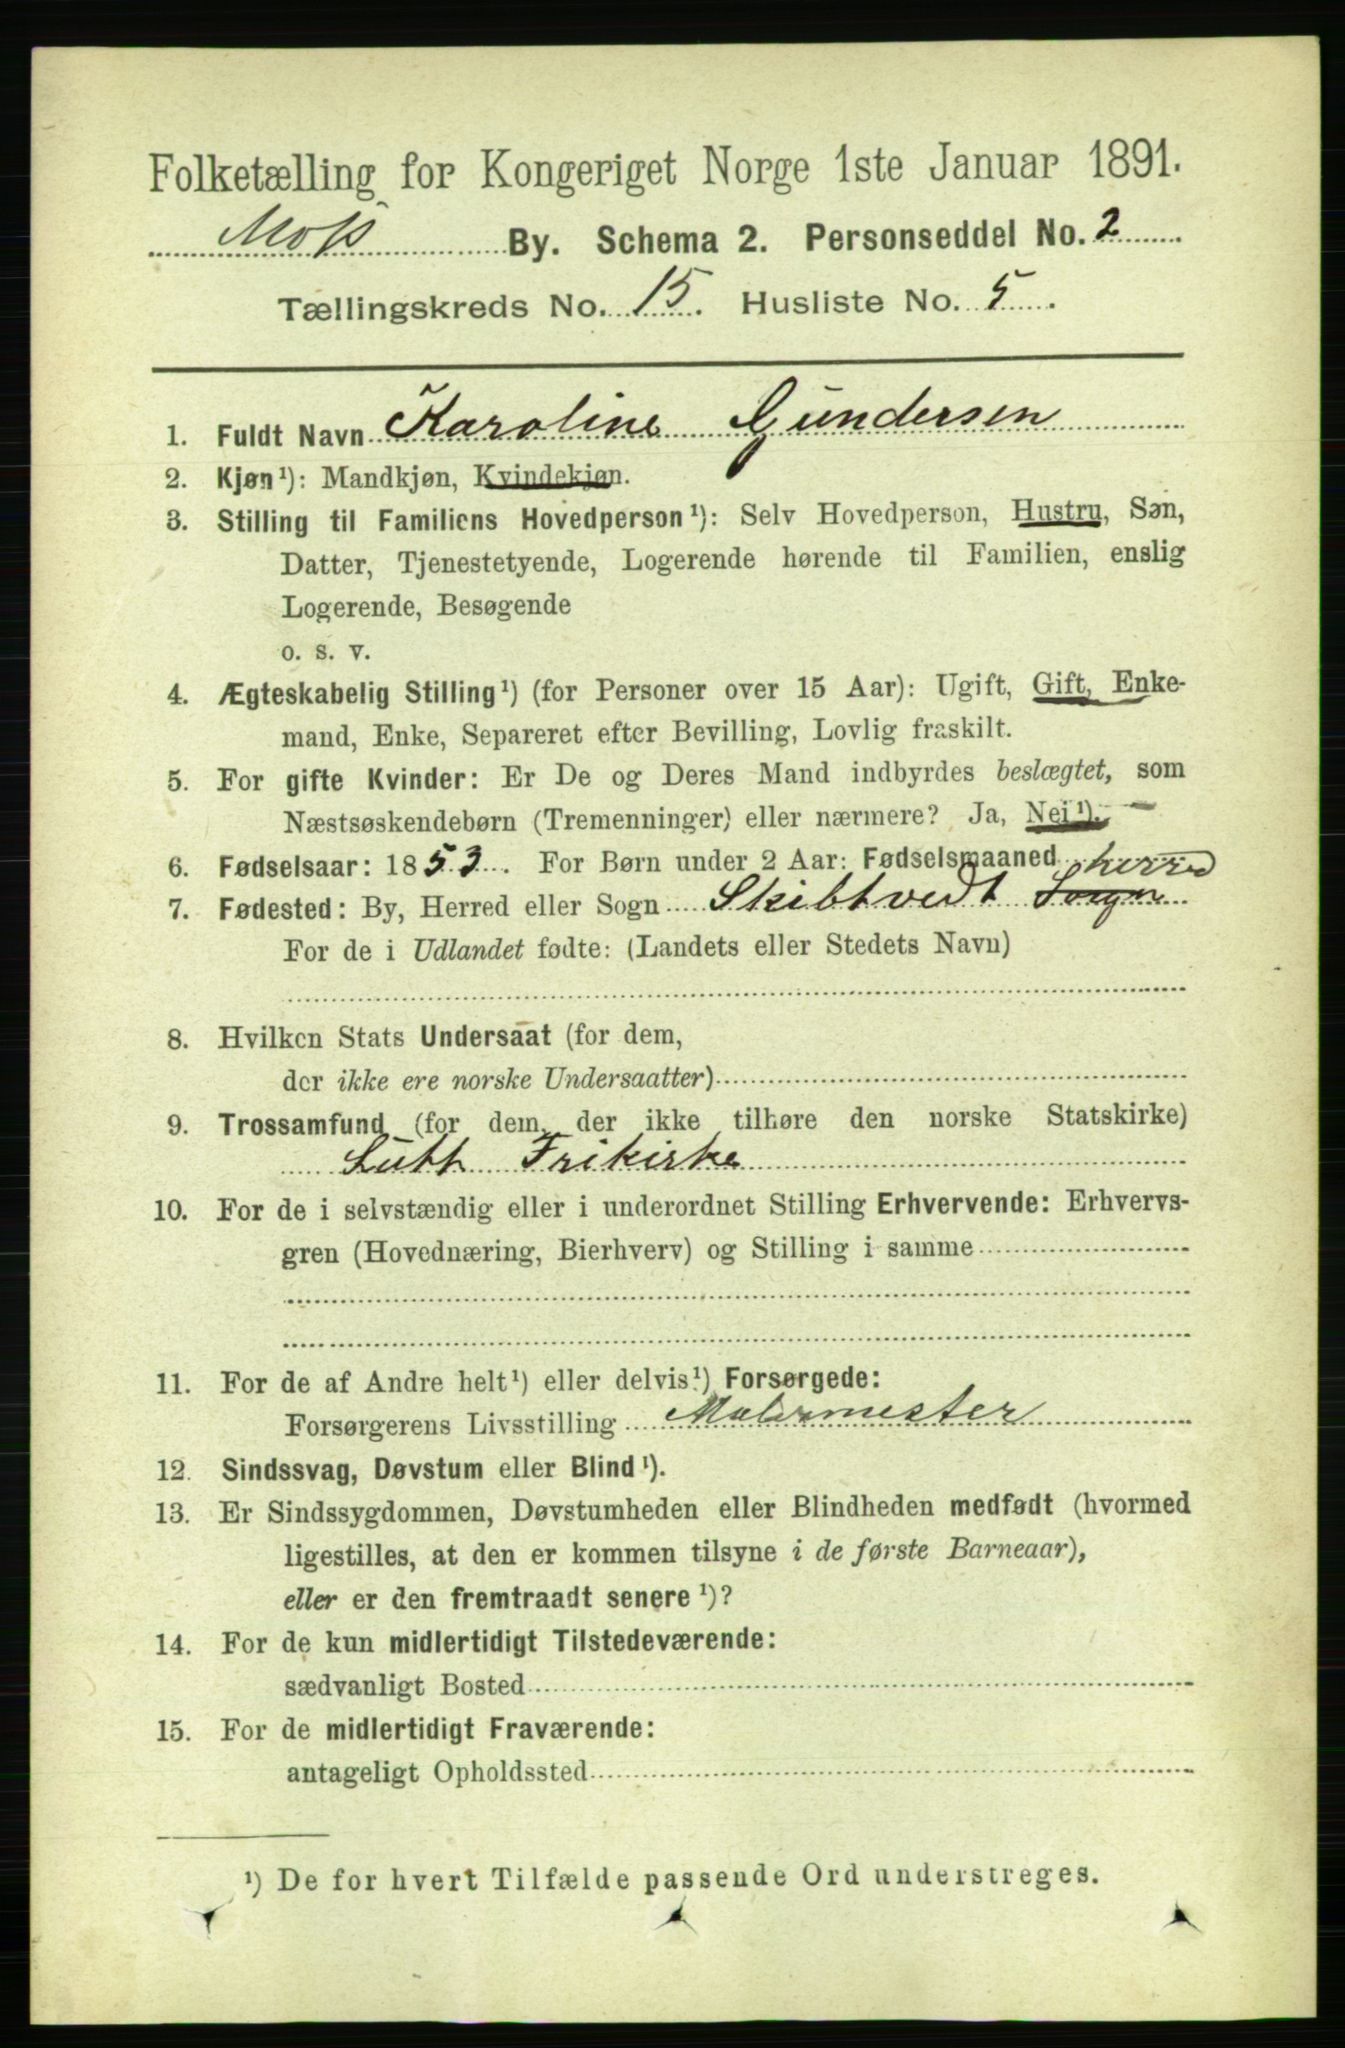 Folketælling for Kongeriget Norge 1ste Januar 1891.
Moss By. Schema 2. Personseddel No. 2
Tællingskreds No. 15. Husliste No. 5.
1. Fuldt Navn Karoline Gundersen
2. Kjøn¹): Mandkjøn, Kvindekjøn.
3. Stilling til Familiens Hovedperson¹): Selv Hovedperson, Hustru, Søn,
Datter, Tjenestetyende, Logerende hørende til Familien, enslig
Logerende, Besøgende
o. s. v.
4. Ægteskabelig Stilling¹) (for Personer over 15 Aar): Ugift, Gift, Enke-
mand, Enke, Separeret efter Bevilling, Lovlig fraskilt.
5. For gifte Kvinder: Er De og Deres Mand indbyrdes beslægtet, som
Næstsøskendebørn (Tremenninger) eller nærmere? Ja, Nei¹).
6. Fødselsaar: 1853. For Børn under 2 Aar: Fødselsmaaned
herred
7. Fødested: By, Herred eller Sogn Skibtvedt Sogn
For de i Udlandet fødte: (Landets eller Stedets Navn)
8. Hvilken Stats Undersaat (for dem,
der ikke ere norske Undersaatter)
9. Trossamfund (for dem, der ikke tilhøre den norske Statskirke)
Luth Frikirke
10. For de i selvstændig eller i underordnet Stilling Erhvervende: Erhvervs-
gren (Hovednæring, Bierhverv) og Stilling i samme
11. For de af Andre helt¹) eller delvis¹) Forsørgede:
Forsørgerens Livsstilling Malermester
12. Sindssvag, Døvstum eller Blind¹).
13. Er Sindssygdommen, Døvstumheden eller Blindheden medfødt (hvormed
ligestilles, at den er kommen tilsyne i de første Barneaar),
eller er den fremtraadt senere¹)?
14. For de kun midlertidigt Tilstedeværende:
sædvanligt Bosted
15. For de midlertidigt Fraværende:
antageligt Opholdssted
¹) De for hvert Tilfælde passende Ord understreges.